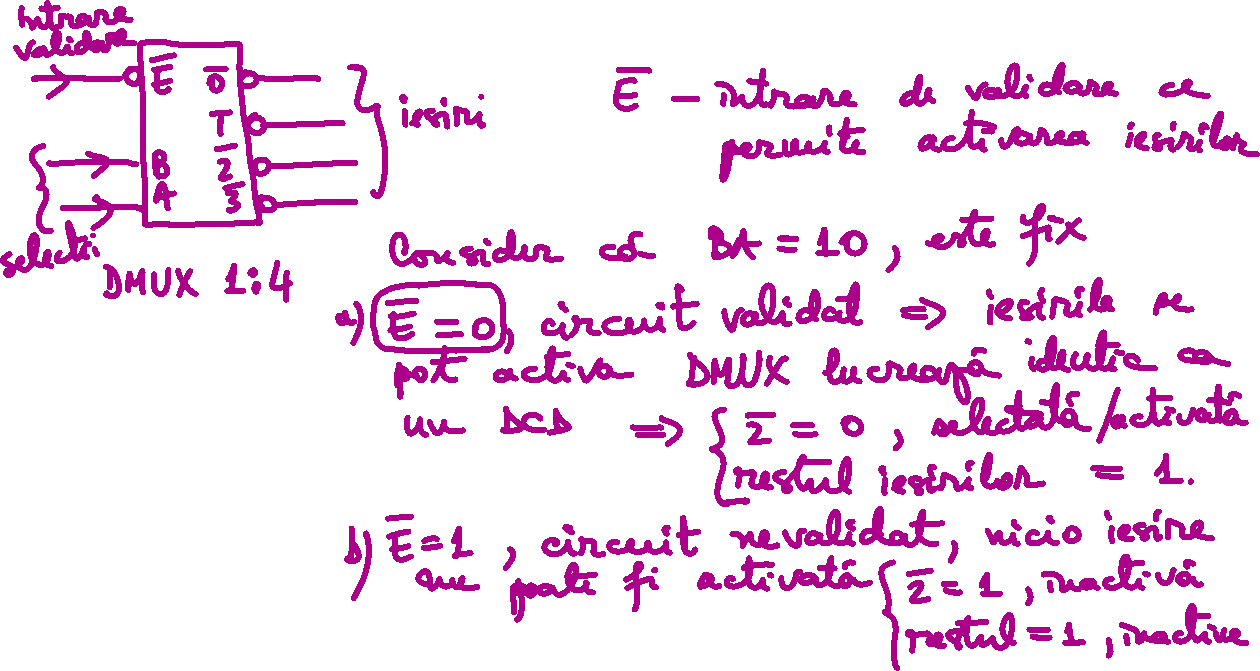 Intrare
validare
E̅ 0̅
1̅
B 2̅
A 3̅
iesiri
selectii
DMUX 1:4
E̅ – intrare de validare ce
permite activarea iesirilor
Consider că BA = 10, este fix
a) E̅ = 0, circuit validat => iesirile se
pot activa DMUX lucrează identic ca
un DCD => { 2̅ = 0, selectată/activată
restul iesirilor = 1.
b) E̅=1, circuit nevalidat, nicio iesire
nu poate fi activată { 2̅ = 1, inactivă
restul = 1, inactive